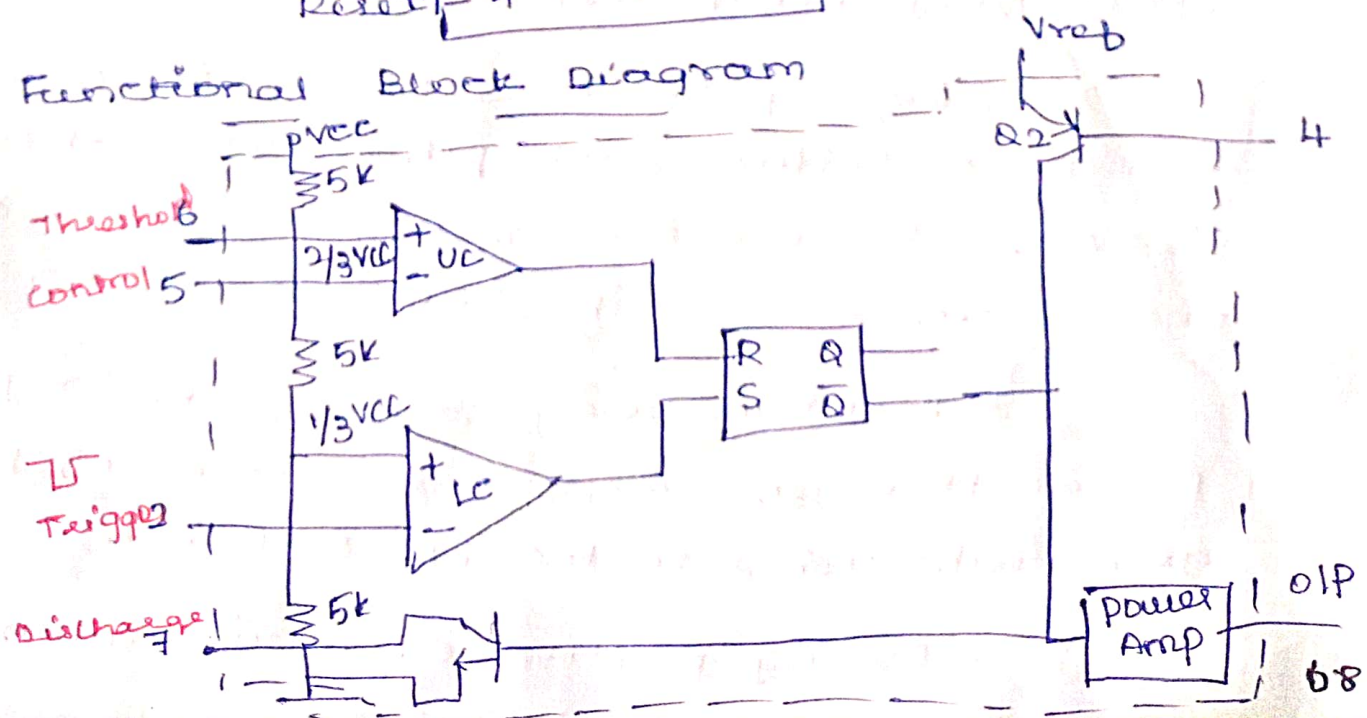 Reset
4
Functional Block Diagram
Vref
+VCC
Q2
4
5K
Threshold
6
+
2/3 VCC
UC
-
Control 5
5K
R Q
S Q̅
1/3 VCC
+
LC
-
Trigger
2
5K
Discharge
7
Power
Amp
O/P